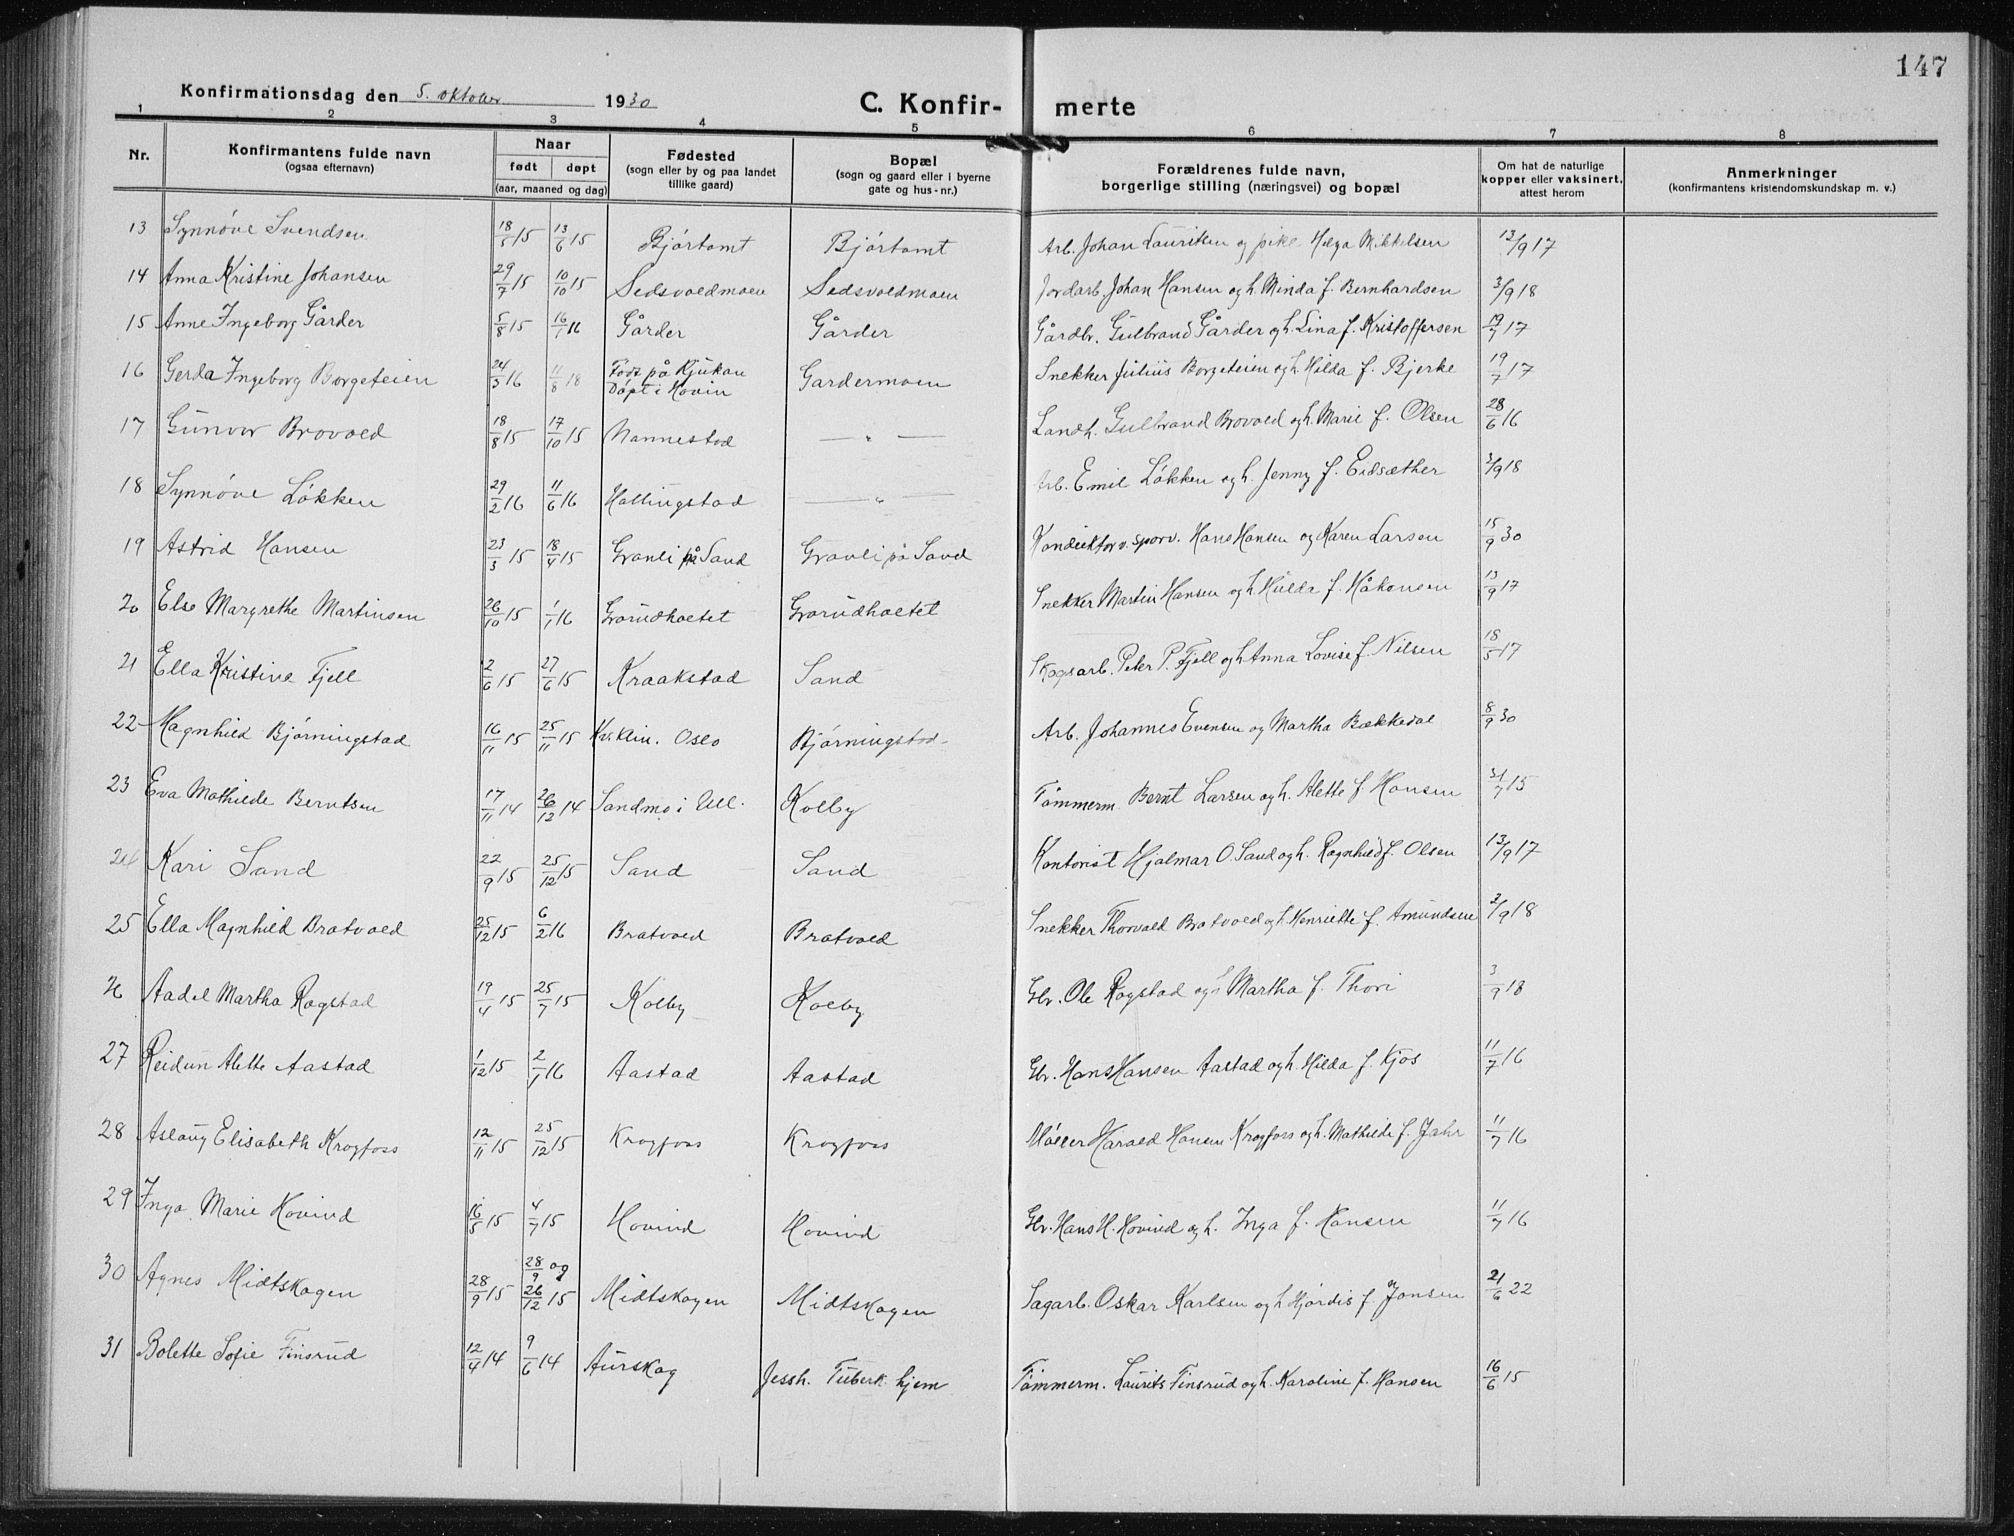 147
Konfirmationsdag den 5. oktober 1930 C. Konfir- merte
1 2 3 4 5 6 7 8
Nr. Konfirmantens fulde navn (ogsaa efternavn) Naar født døpt (aar, maaned og dag) Fødested (sogn eller by og paa landet tillike gaard) Bopæl (sogn og gaard eller i byerne gate og hus-nr.) Forældrenes fulde navn, borgerlige stilling (næringsvei) og bopæl Om hat de naturlige kopper eller vaksinert, attest herom Anmerkninger (konfirmantens kristendomskundskap m. v.)
13 Synnöve Svendsen 18/5 15 13/6 15 Björtomt Björtomt Arb. Johan Lauritsen og pike Helga Mikkelsen 13/9 17
14 Anna Kristine Johansen 29/7 15 10/10 15 Sedsvoldmoen Sedsvoldmoen Jordarb. Johan Hansen og h. Minda f. Bernhardsen 3/9 18
15 Anne Ingeborg Gårder 5/8 15 16/1 16 Gårder Gårder Gårdbr. Gulbrand Gårder og h. Lina f. Kristoffersen 19/7 17
16 Gerda Ingeborg Borgeteien 24/3 16 11/8 18 Född på Rjukan Döpt i Hovin Gardermoen Snekker Julius Borgeteien og h. Hilda f. Bjerke 19/7 17
17 Gunvor Brovold 18/8 15 17/10 15 Nannestad — " — Landh. Gulbrand Brovold og h. Marie f. Olsen 28/6 16
18 Synnöve Lökken 29/2 16 11/6 16 Hallingstad — " — Arb. Emil Lökken og h. Jenny f. Eidsæther 3/9 18
19 Astrid Hansen 23/3 15 18/4 15 Granli på Sand Granli på Sand Konduktör v. sporv. Hans Hansen og Karen Larsen 15/9 30
20 Else Margrethe Martinsen 26/10 15 1/1 16 Grorudholtet Grorudholtet Snekker Martin Hansen og h. Hulda f. Håkonsen 13/9 17
21 Ella Kristine Fjell 2/6 15 27/6 15 Kraakstad Sand Skogsarb. Peter P. Fjell og h. Anna Lovise f. Nilsen 18/5 17
22 Magnhild Bjørningstad 16/11 15 25/11 15 Kv.klin. Oslo Bjørningstad Arb. Johannes Evensen og Martha Bækkedal 8/9 30
23 Eva Mathilde Berntsen 17/11 14 26/12 14 Sandmo i Ull. Kolby Tömmerm. Bernt Larsen og h. Alette f. Hansen 31/7 15
24 Kari Sand 22/9 15 25/12 15 Sand Sand Kontorist Hjalmar O. Sand og h. Ragnhild f. Olsen 13/9 17
25 Ella Magnhild Bratvold 25/12 15 6/2 16 Bratvold Bratvold Snekker Thorvald Bratvold og h. Henriette f. Amundsen 2/9 18
26 Aadel Martha Rogstad 19/4 15 25/7 15 Kolby Kolby Gbr. Ole Rogstad og h. Martha f. Thori 3/9 18
27 Reidun Alette Aastad 1/12 15 2/1 16 Aastad Aastad Gbr. Hans Hansen Aastad og h. Hilda f. Kjos 11/7 16
28 Aslaug Elisabeth Krogfoss 12/11 15 25/12 15 Krogfoss Krogfoss Möller Harald Hansen Krogfoss og h. Mathilde f. Jahr 11/7 16
29 Inga Marie Hovind 16/5 15 4/7 15 Hovind Hovind Gbr. Hans H. Hovind og h. Inga f. Hansen 11/7 16
30 Agnes Midtskogen 28/9 15 28/9 og 26/12 15 Midtskogen Midtskogen Sagarb. Oskar Karlsen og h. Hjördis f. Jonsen 21/6 22
31 Bolette Sofie Finsrud 12/4 14 9/6 14 Aurskog Jessh. Tuberk. hjem Tömmerm. Laurits Finsrud og h. Karoline f. Hansen 16/6 15